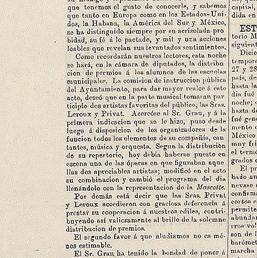 que tenemos el gusto de conocerle, y sabemos
que tanto en Europa como en los Estados-Uni-
dos, la Habana, la América del Sur y México,
se ha distinguido siempre por su acrisolada pro-
bidad, su fé á lo pactado, y mil y una acciones
loables que revelan sus levantados sentimientos.
Como recordarán nuestros lectores, esta noche
se hará, en la cámara de diputados, la distribu-
cion de premios á los alumnos de las escuelas
municipales. La comision de instruccion pública
del Ayuntamiento, para dar mayor realce á este
acto, deseó que en la parte musical tomaran par-
ticipio dos artistas favoritas del público, las Sras.
Leroux y Privat. Acercóse al Sr. Grau, y á la
primera indicacion que se le hizo, puso desde
luego á disposicion de los organizadores de la
funcion todos los elementos de su compañía, can-
tantes, música y orquesta. Segun la distribucion
de su repertorio, hoy debia haberse puesto en
escena una de las óperas en que figuraban aque-
llas apreciables artistas; modificó en el acto
su combinacion y cambió el programa del dia
llenándolo con la representacion de la Mascotte.
Por demás está decir que las Sras. Privat
y Leroux accedieron con graciosa deferencia á
prestar su cooperacion á nuestros ediles, contri-
buyendo así valiosamente al brillo de la solemne
distribucion de premios.
El segundo favor á que aludimos no es mé-
nos estimable.
El Sr. Grau ha tenido la bondad de poner á
capital,
ferido,
EST
torio M
siguient
Dicie
tempora
27 y 28
pais, de
hasta
noche
dia se
hasta
fué gene
menor v
midad
mado
El pro
bado an
excedid
en gene
cion de
fué
de un
baróme
marcha